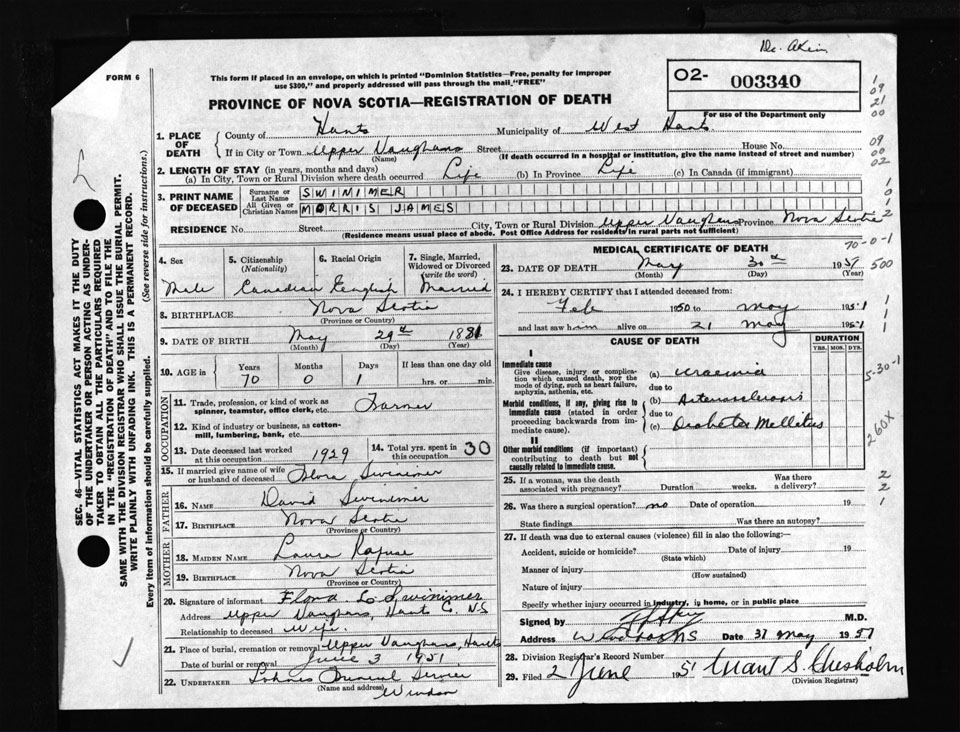 Dr. Akin
FORM 6
This form if placed in an envelope, on which is printed "Dominion Statistics—Free, penalty for improper
use $300," and properly addressed will pass through the mail "FREE"
02- 003340
PROVINCE OF NOVA SCOTIA—REGISTRATION OF DEATH
For use of the Department only
1. PLACE OF DEATH
County of Hants Municipality of West Hants
If in City or Town Upper Vaughans Street House No.
(Name) (If death occurred in a hospital or institution, give the name instead of street and number)
2. LENGTH OF STAY (in years, months and days)
(a) In City, Town or Rural Division where death occurred Life (b) In Province Life (c) In Canada (if immigrant)
3. PRINT NAME OF DECEASED
Surname or Last Name SWINIMER
All Given or Christian Names MORRIS JAMES
RESIDENCE No. Street City, Town or Rural Division Upper Vaughans Province Nova Scotia
(Residence means usual place of abode. Post Office Address for residents in rural parts not sufficient)
4. Sex
Male
5. Citizenship
(Nationality)
Canadian
6. Racial Origin
English
7. Single, Married,
Widowed or Divorced
(write the word)
Married
8. BIRTHPLACE Nova Scotia
(Province or Country)
9. DATE OF BIRTH May 29th 1881
(Month) (Day) (Year)
10. AGE in
Years Months Days If less than one day old
70 0 1 hrs. or min.
OCCUPATION
11. Trade, profession, or kind of work as
spinner, teamster, office clerk, etc. Farmer
12. Kind of industry or business, as cotton-
mill, lumbering, bank, etc.
13. Date deceased last worked
at this occupation 1929
14. Total yrs. spent in
this occupation 30
15. If married give name of wife
or husband of deceased Flora Swinimer
FATHER
16. Name David Swinimer
17. Birthplace Nova Scotia
(Province or Country)
MOTHER
18. MAIDEN NAME Laura Rafuse
19. BIRTHPLACE Nova Scotia
(Province or Country)
20. Signature of informant Flora L. Swinimer
Address Upper Vaughans, Hants Co. N.S
Relationship to deceased Wife
21. Place of burial, cremation or removal Upper Vaughans, Hants
Date of burial or removal June 3 1951
22. UNDERTAKER Lohnes Funeral Service
(Name and address) Windsor
MEDICAL CERTIFICATE OF DEATH
23. DATE OF DEATH May 30th 1951
(Month) (Day) (Year)
24. I HEREBY CERTIFY that I attended deceased from:
Feb 1950 to May 1951
and last saw him alive on 21 May 1951
CAUSE OF DEATH
DURATION
YRS. MOS. DYS.
I
Immediate cause
Give disease, injury or complica-
tion which caused death, NOT the
mode of dying, such as heart failure,
asphyxia, asthenia, etc.
(a) Uraemia
due to
Morbid conditions, if any, giving rise to
immediate cause (stated in order
proceeding backwards from im-
mediate cause).
(b) Arteriosclerosis
due to
(c) Diabetes Mellitus
II
Other morbid conditions (if important)
contributing to death but not
causally related to immediate cause.
25. If a woman, was the death
associated with pregnancy? Duration weeks. Was there
a delivery?
26. Was there a surgical operation? no Date of operation 19
State findings Was there an autopsy?
27. If death was due to external causes (violence) fill in also the following:
Accident, suicide or homicide? Date of injury 19
(State which)
Manner of injury
(How sustained)
Nature of injury
Specify whether injury occurred in industry, in home, or in public place
Signed by M.D.
Address Windsor NS Date 31 May 1951
28. Division Registrar's Record Number
29. Filed 2 June 1951 Grant S. Chisholm
(Division Registrar)
SEC. 46—VITAL STATISTICS ACT MAKES IT THE DUTY
OF THE UNDERTAKER OR PERSON ACTING AS UNDER-
TAKER TO OBTAIN ALL THE PARTICULARS REQUIRED
IN THE "REGISTRATION OF DEATH" AND TO FILE THE
SAME WITH THE DIVISION REGISTRAR WHO SHALL ISSUE THE BURIAL PERMIT.
WRITE PLAINLY WITH UNFADING INK. THIS IS A PERMANENT RECORD.
Every item of information should be carefully supplied. (See reverse side for instructions.)
1
09
21
00
09
00
02
1
0
1
2
70-0-1
500
1
1
1
5-30-1
260X
2
2
1